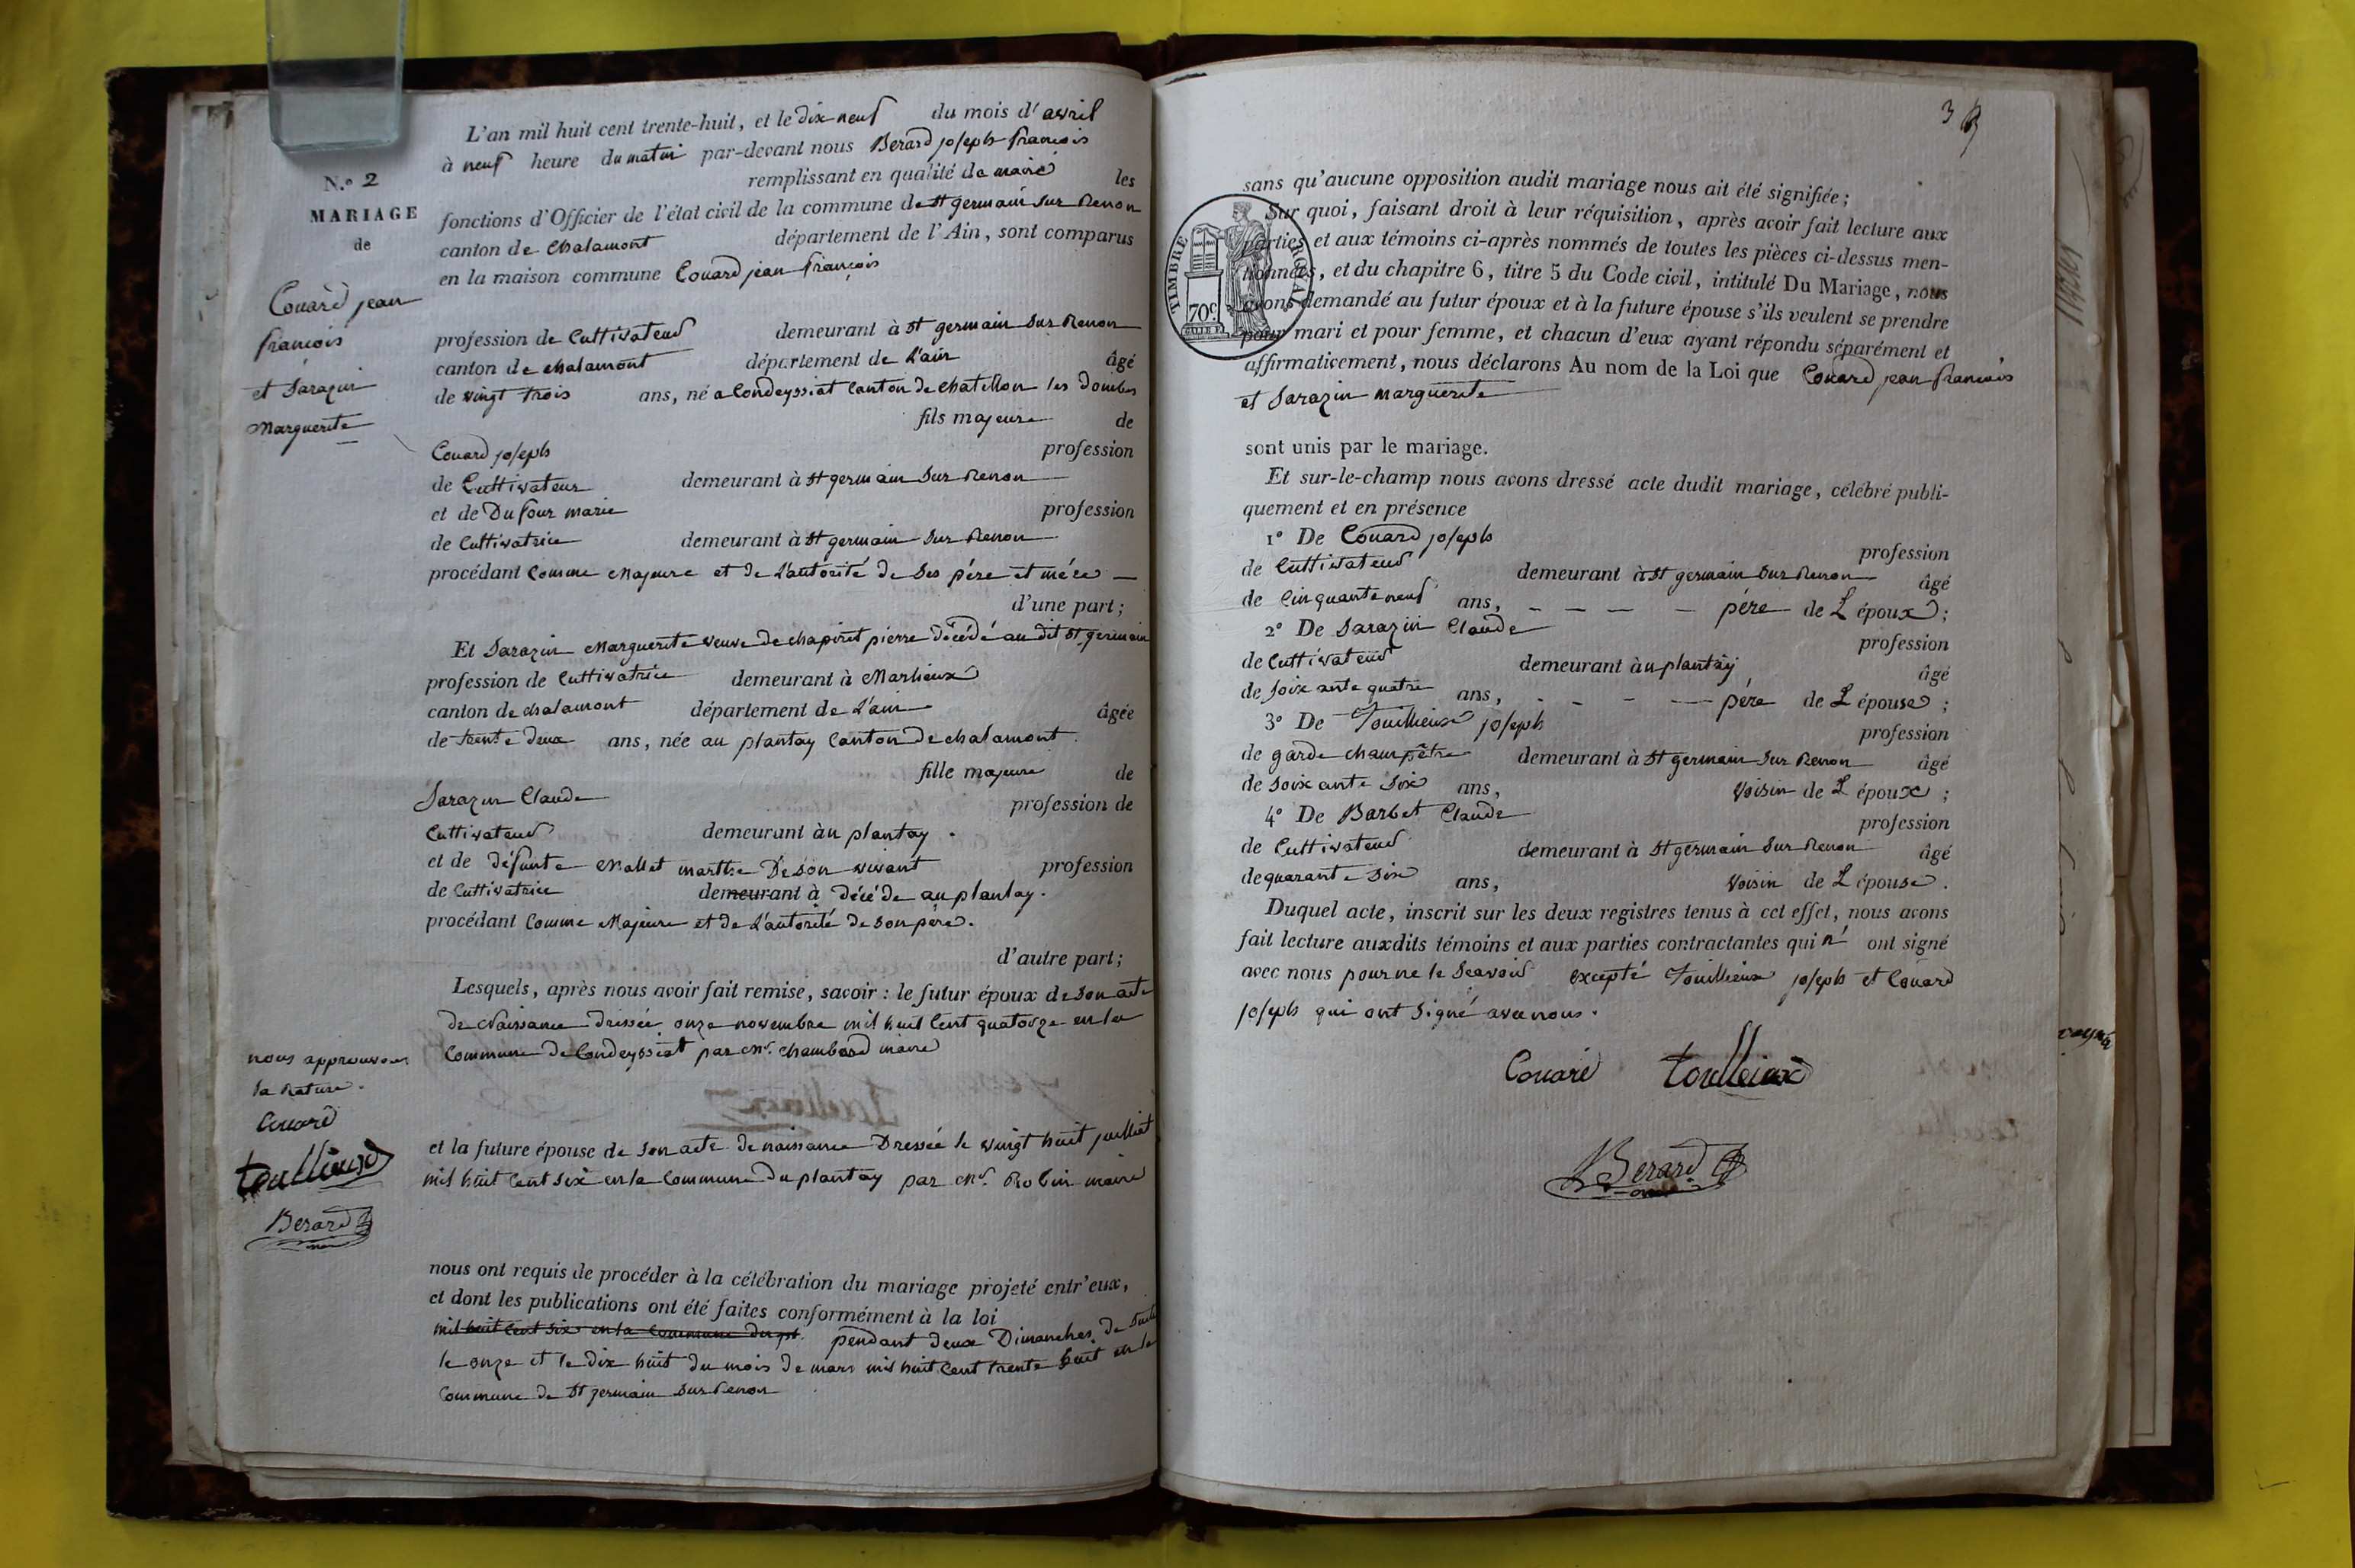 N.º 2
MARIAGE
de
Couard jean
françois
et Sarazin
Marguerite
nous approuvons
la Rature.
Couard
toullieux
Berard
L'an mil huit cent trente-huit, et le dix neuf du mois d'avril
à neuf heure du matin par-devant nous Berard joseph françois
remplissant en qualité de maire les
fonctions d'Officier de l'état civil de la commune de st germain sur Renon
canton de chalamont département de l'Ain, sont comparus
en la maison commune Couard jean françois
profession de Cultivateur demeurant à st germain sur Renon
canton de chalamont département de L'ain âgé
de vingt trois ans, né a Condeyssiat Canton de chatillon les Dombes
fils majeure de
Couard joseph profession
de Cultivateur demeurant à st germain sur Renon
et de Dufour marie profession
de Cultivatrice demeurant à st germain sur Renon
procédant Comme Majeure et de L'autorité de ses père et mére
d'une part;
Et Sarazin Marguerite veuve de chapiret pierre décédé au dit st germain
profession de Cultivatrice demeurant à Marlieux
canton de chalamont département de L'ain âgée
de trente deux ans, née au plantay Canton de chalamont.
fille majeure de
Sarazin Claude profession de
Cultivateur demeurant àu plantay.
et de défunte Mallet marthe De son vivant profession
de Cultivatrice demeurant à décédé au plantay.
procédant Comme Majeure et de L'autorité de son père.
d'autre part;
Lesquels, après nous avoir fait remise, savoir : le futur époux de son acte
de Naissance dressée onze novembre mil huit Cent quatorze en la
Commune de Condeyssiat par Mr. Chambard maire
et la future épouse de son acte de naissance Dressée le vingt huit juilliet
mil huit Cent six en la Commune du plantay par Mr. Robin maire
nous ont requis de procéder à la célébration du mariage projeté entr'eux,
et dont les publications ont été faites conformément à la loi
mil huit Cent six en la Commune du pt. pendant deux Dimanches de suite
le onze et le dix huit du mois de mars mil huit Cent trente huit en la
Commune de St germain sur Renon
3
sans qu'aucune opposition audit mariage nous ait été signifiée;
Sur quoi, faisant droit à leur réquisition, après avoir fait lecture aux
parties et aux témoins ci-après nommés de toutes les pièces ci-dessus men-
tionnées, et du chapitre 6, titre 5 du Code civil, intitulé Du Mariage, nous
avons demandé au futur époux et à la future épouse s'ils veulent se prendre
pour mari et pour femme, et chacun d'eux ayant répondu séparément et
affirmativement, nous déclarons Au nom de la Loi que Couard jean francois
et Sarazin marguerite
TIMBRE ROYAL
70c.
sont unis par le mariage.
Et sur-le-champ nous avons dressé acte dudit mariage, célébré publi-
quement et en présence
1º De Couard joseph profession
de Cultivateur demeurant à st germain sur Renon âgé
de Cinquante neuf ans, père de L'époux;
2º De Sarazin Claude profession
de Cultivateur demeurant àu plantay âgé
de soixante quatre ans, père de L'épouse;
3º De Touillieux joseph profession
de garde champêtre demeurant à st germain sur Renon âgé
de soixante six ans, voisin de L'époux;
4º De Barbet Claude profession
de Cultivateur demeurant à st germain sur Renon âgé
de quarante six ans, voisin de L'épouse.
Duquel acte, inscrit sur les deux registres tenus à cet effet, nous avons
fait lecture auxdits témoins et aux parties contractantes qui n' ont signé
avec nous pour ne le Scavoir excepté Touillieux joseph et Couard
joseph qui ont signé avec nous.
Couard toullieux
Berard